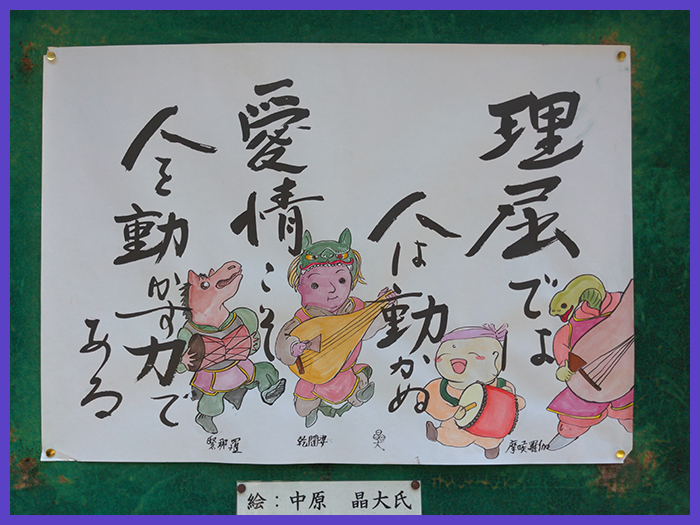 理屈では
人は動かぬ
愛情こそ
人を動かす力で
ある
摩睺羅伽
晶大
乾闥婆
緊那羅
絵：中原　晶大氏